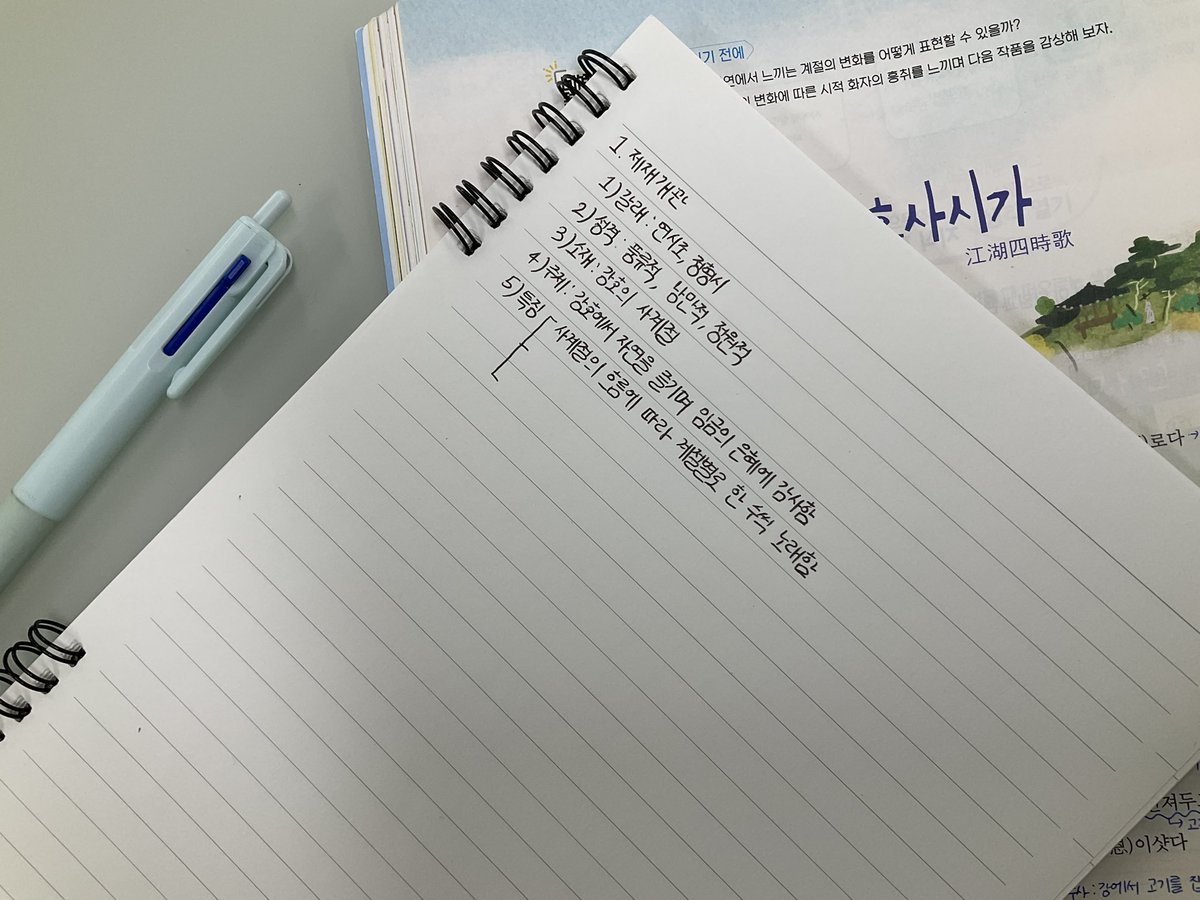 기 전에
연에서 느끼는 계절의 변화를 어떻게 표현할 수 있을까?
변화에 따른 시적 화자의 흥취를 느끼며 다음 작품을 감상해 보자.
사시가
江湖四時歌
1. 제재 개관
1) 갈래 : 연시조, 정형시
2) 성격 : 풍류적, 낭만적, 전원적
3) 소재 : 강호의 사계절
4) 주제 : 강호에서 자연을 즐기며 임금의 은혜에 감사함
5) 특징
사계절의 흐름에 따라 계절별로 한 수씩 노래함
)로다
져두
)이샷다
강에서 고기를 잡